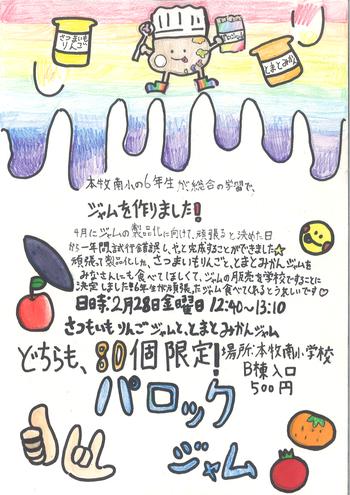 さつまいも
りんご
とまとみかん
本牧南小の6年生が総合の学習で、
ジャムを作りました!
4月にジャムの製品化に向けて、頑張ると決めた日
から一年間試行錯誤し、やっと完成することができました☆
頑張って製品化した、さつまいもりんごと、とまとみかんジャムを
みなさんにも食べてほしくて、ジャムの販売を学校ですることに
決定しました!!6年生が頑張ったジャム食べてくれるとうれしいです♡
日時:2月28日金曜日 12:40~13:10
さつもいもりんごジャムと、とまとみかんジャム
どちらも、80個限定!
場所:本牧南小学校
B棟入口
500円
パロック
ジャム